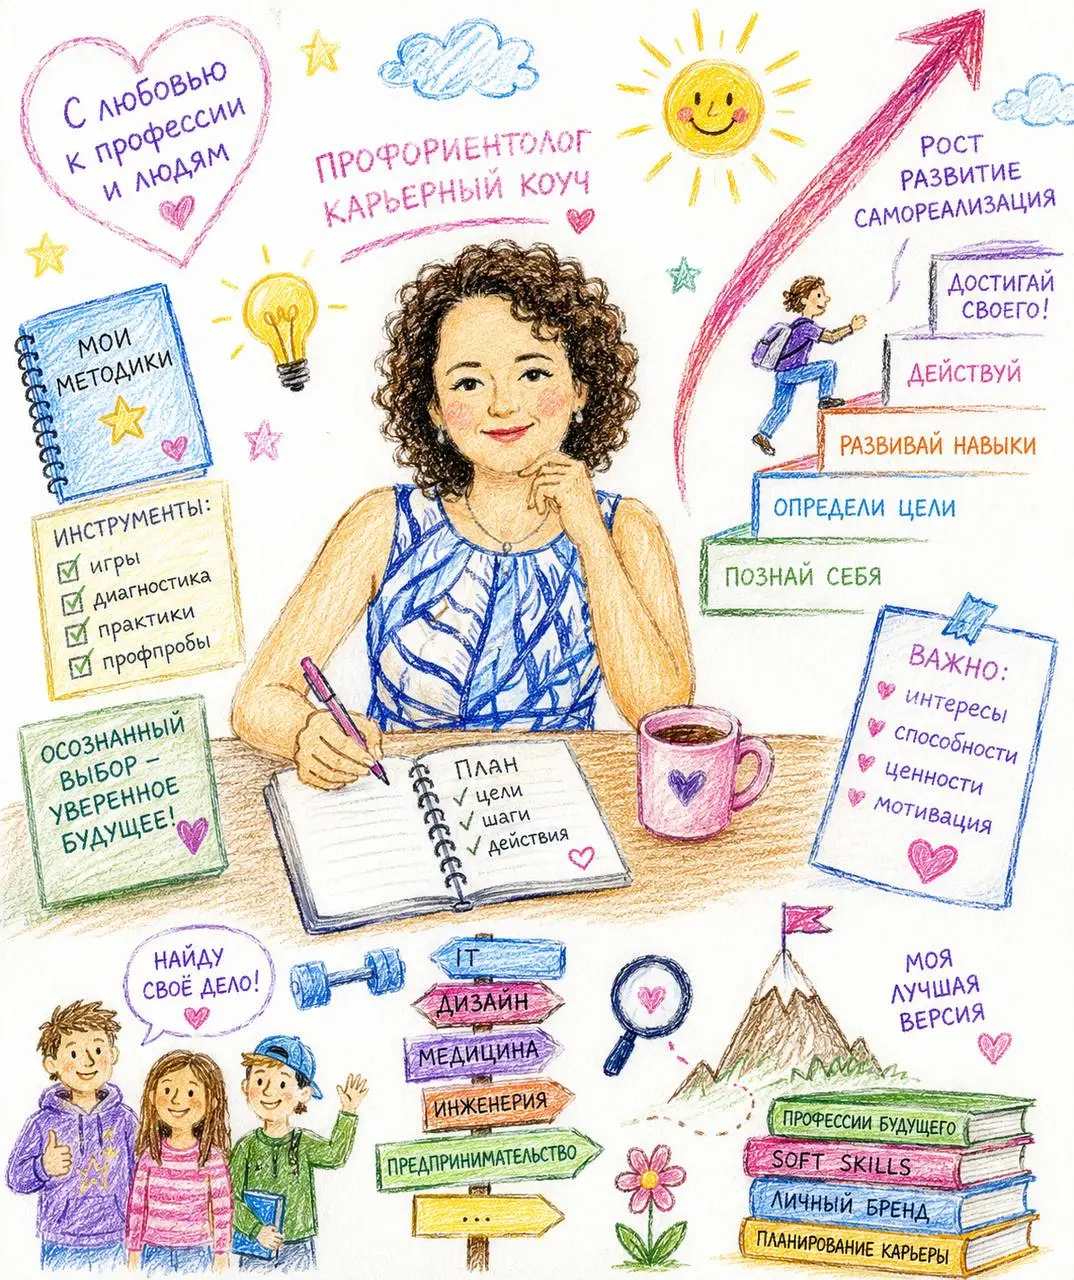 С любовью
к профессии
и людям
ПРОФОРИЕНТОЛОГ
КАРЬЕРНЫЙ КОУЧ
РОСТ
РАЗВИТИЕ
САМОРЕАЛИЗАЦИЯ
ДОСТИГАЙ
СВОЕГО!
ДЕЙСТВУЙ
РАЗВИВАЙ НАВЫКИ
ОПРЕДЕЛИ ЦЕЛИ
ПОЗНАЙ СЕБЯ
МОИ
МЕТОДИКИ
ИНСТРУМЕНТЫ:
игры
диагностика
практики
профпробы
ОСОЗНАННЫЙ
ВЫБОР –
УВЕРЕННОЕ
БУДУЩЕЕ!
ПЛАН
цели
шаги
действия
ВАЖНО:
интересы
способности
ценности
мотивация
НАЙДУ
СВОЁ ДЕЛО!
IT
ДИЗАЙН
МЕДИЦИНА
ИНЖЕНЕРИЯ
ПРЕДПРИНИМАТЕЛЬСТВО
...
МОЯ
ЛУЧШАЯ
ВЕРСИЯ
ПРОФЕССИИ БУДУЩЕГО
SOFT SKILLS
ЛИЧНЫЙ БРЕНД
ПЛАНИРОВАНИЕ КАРЬЕРЫ